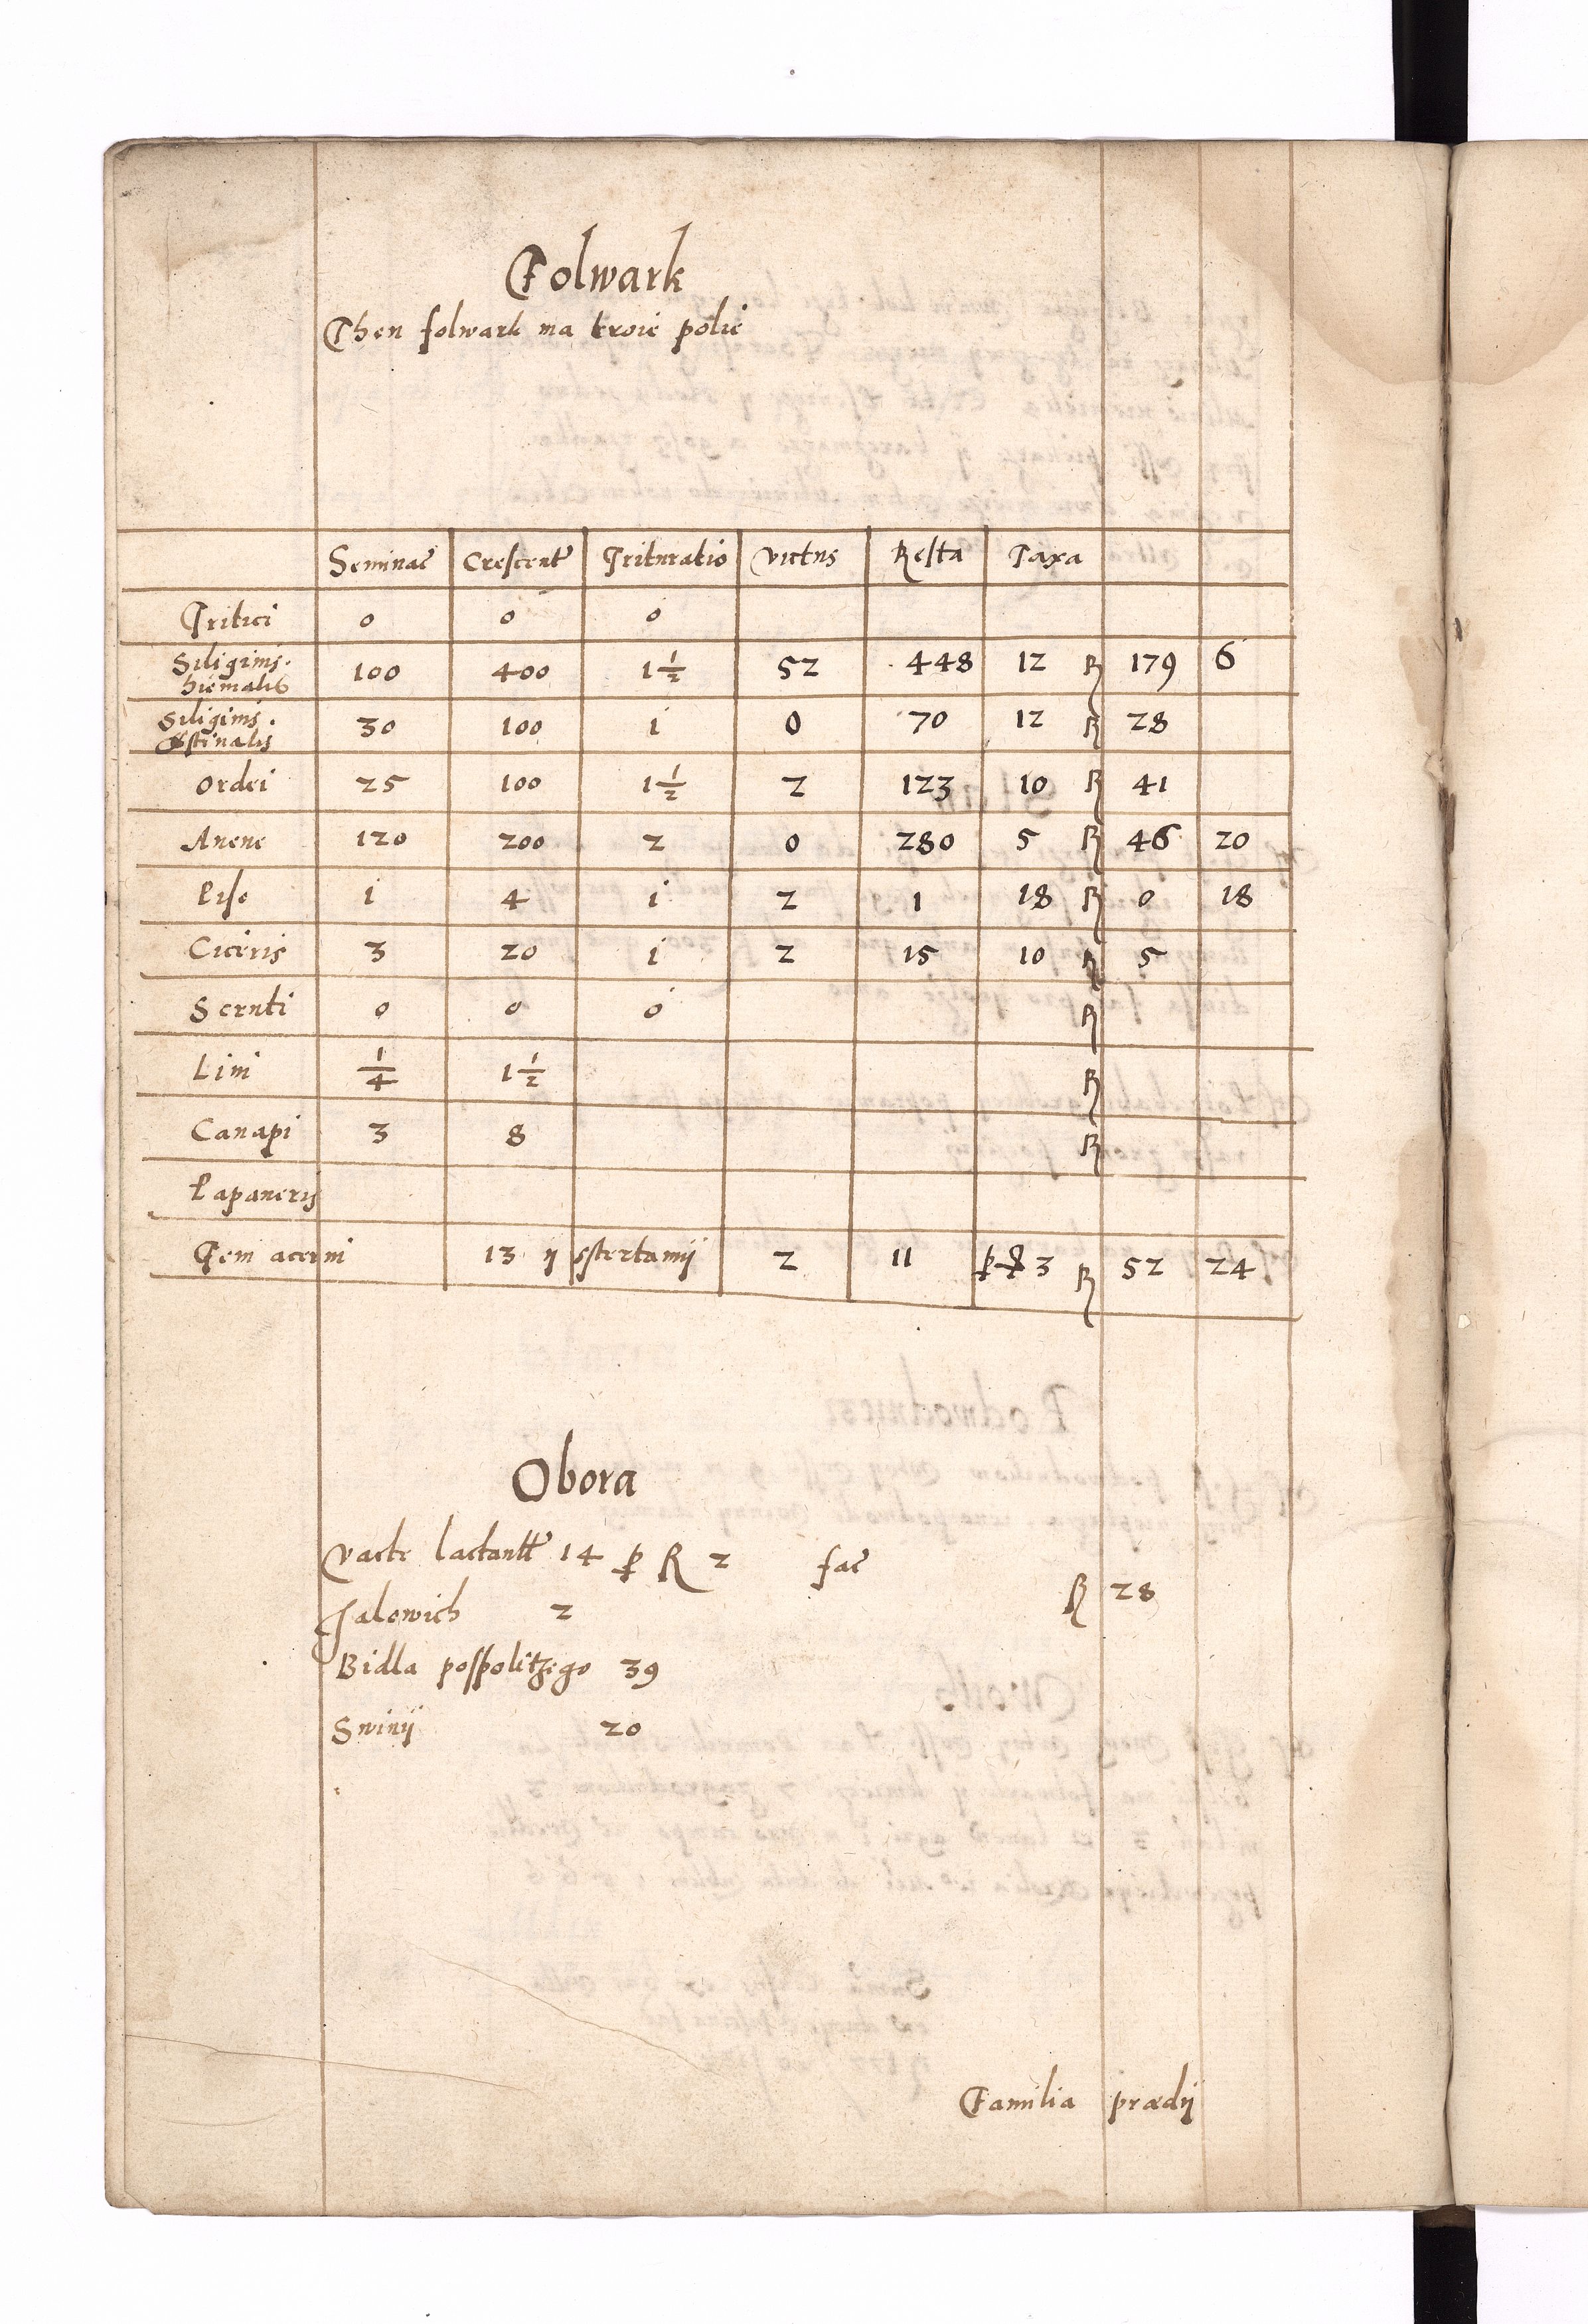 Folwark
Then folwark ma troie polie
Seminat Crescent Trituratio Victus Resta Taxa
Tritici 0 0 0
Siliginis hiemalis 100 400 1 1/2 52 448 12 R 179 6
Siliginis Æstiualis 30 100 1 0 70 12 R 28
Ordei 25 100 1 1/2 2 123 10 R 41
Auene 120 200 2 0 280 5 R 46 20
Piso 1 4 1 2 1 18 R 0 18
Ciceris 3 20 1 2 15 10 R 5
Scruti 0 0 0 R
Lini 1/4 1 1/2 R
Canapi 3 8 R
Papaueris
Feni acerui 13 y stertamij 2 11 3 R 52 24
Obora
Vacce lactant 14 p R 2 fac R 28
Jalowich 2
Bidla pospolitzego 39
Swinij 20
Familia prædij